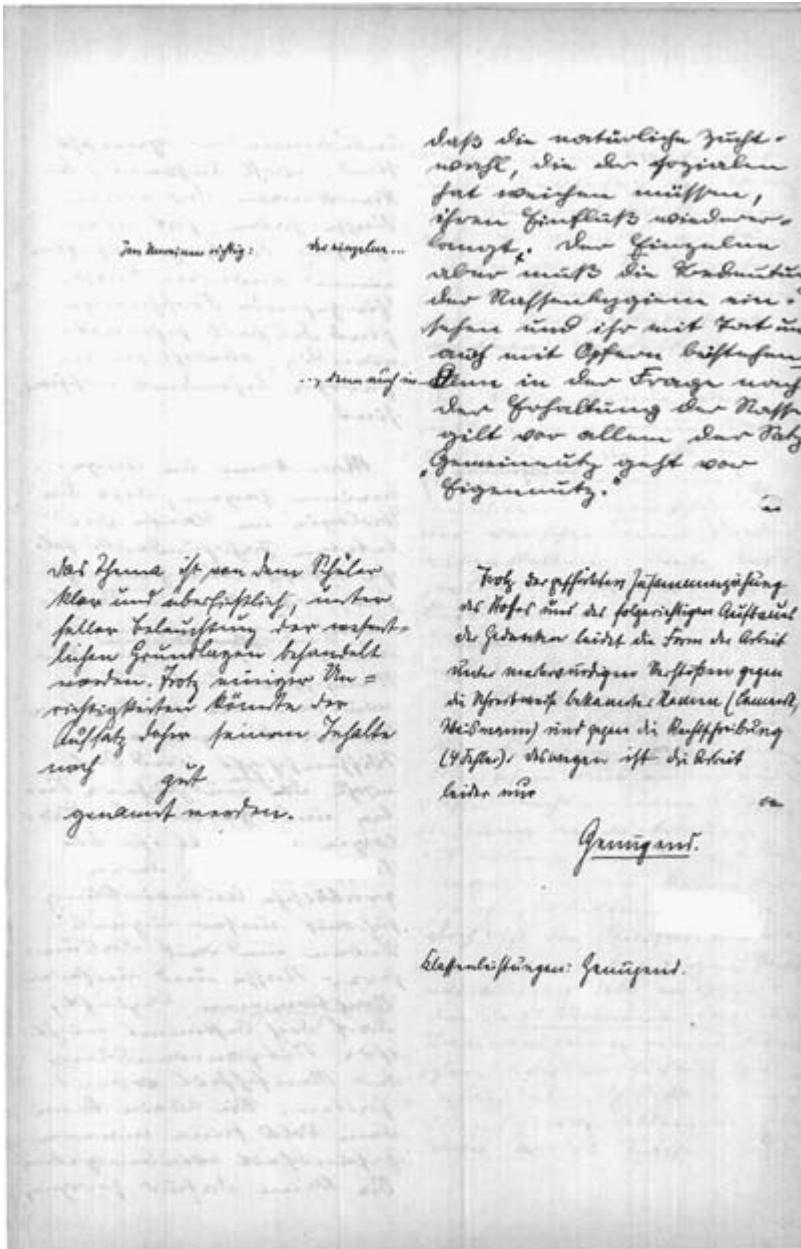 daß die natürliche Zucht-
wahl, die der sozialen
hat weichen müssen,
ihren Einfluß wiederer-
langt. Der Einzelne
aber muß die Bedeutun
der Rassenhygiene ein-
sehen und ihr mit Tat un
auch mit Opfern beistehen
Denn in der Frage nach
der Erhaltung der Rasse
gilt vor allem der Satz
"Gemeinnutz geht vor
Eigennutz."
richtig: der einzelne...
..., denn auch in
Das Thema ist von dem Schüler
klar und übersichtlich, unter
heller Beleuchtung der wesent-
lichen Grundlagen behandelt
worden. Trotz einiger Un-
richtigkeiten könnte der
Aufsatz daher seinem Inhalte
nach gut
genannt werden.
Trotz der geschickten
des Stoffes und des folgerichtigen Aufbaues
der Gedanken leidet die Form der Arbeit
unter merkwürdigen Verstößen gegen
die Schreibweise bekannter Namen (Lamarck,
Weismann) und gegen die Rechtschreibung
(4 Fehler). Deswegen ist die Arbeit
leider nur
Genügend.
Klassenleistungen: Genügend.